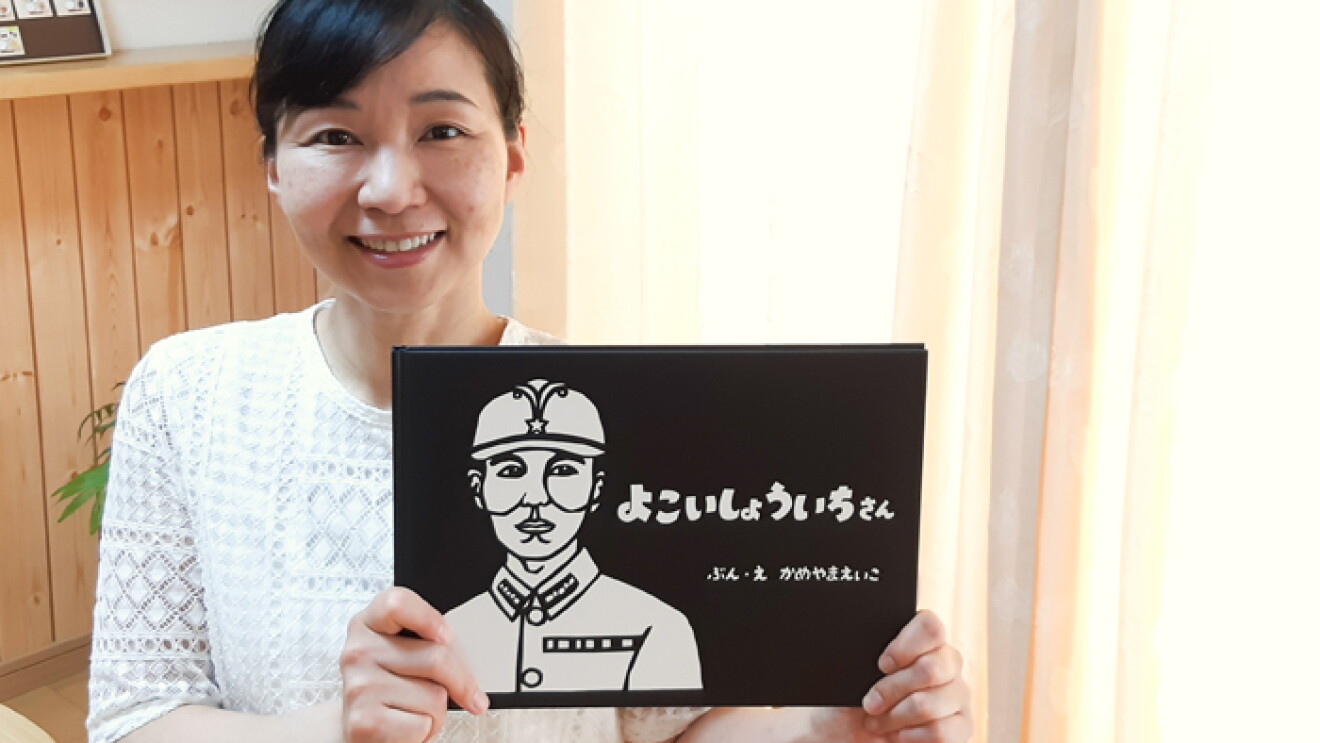 よこいしょういちさん
ぶん・え かめやまえいこ